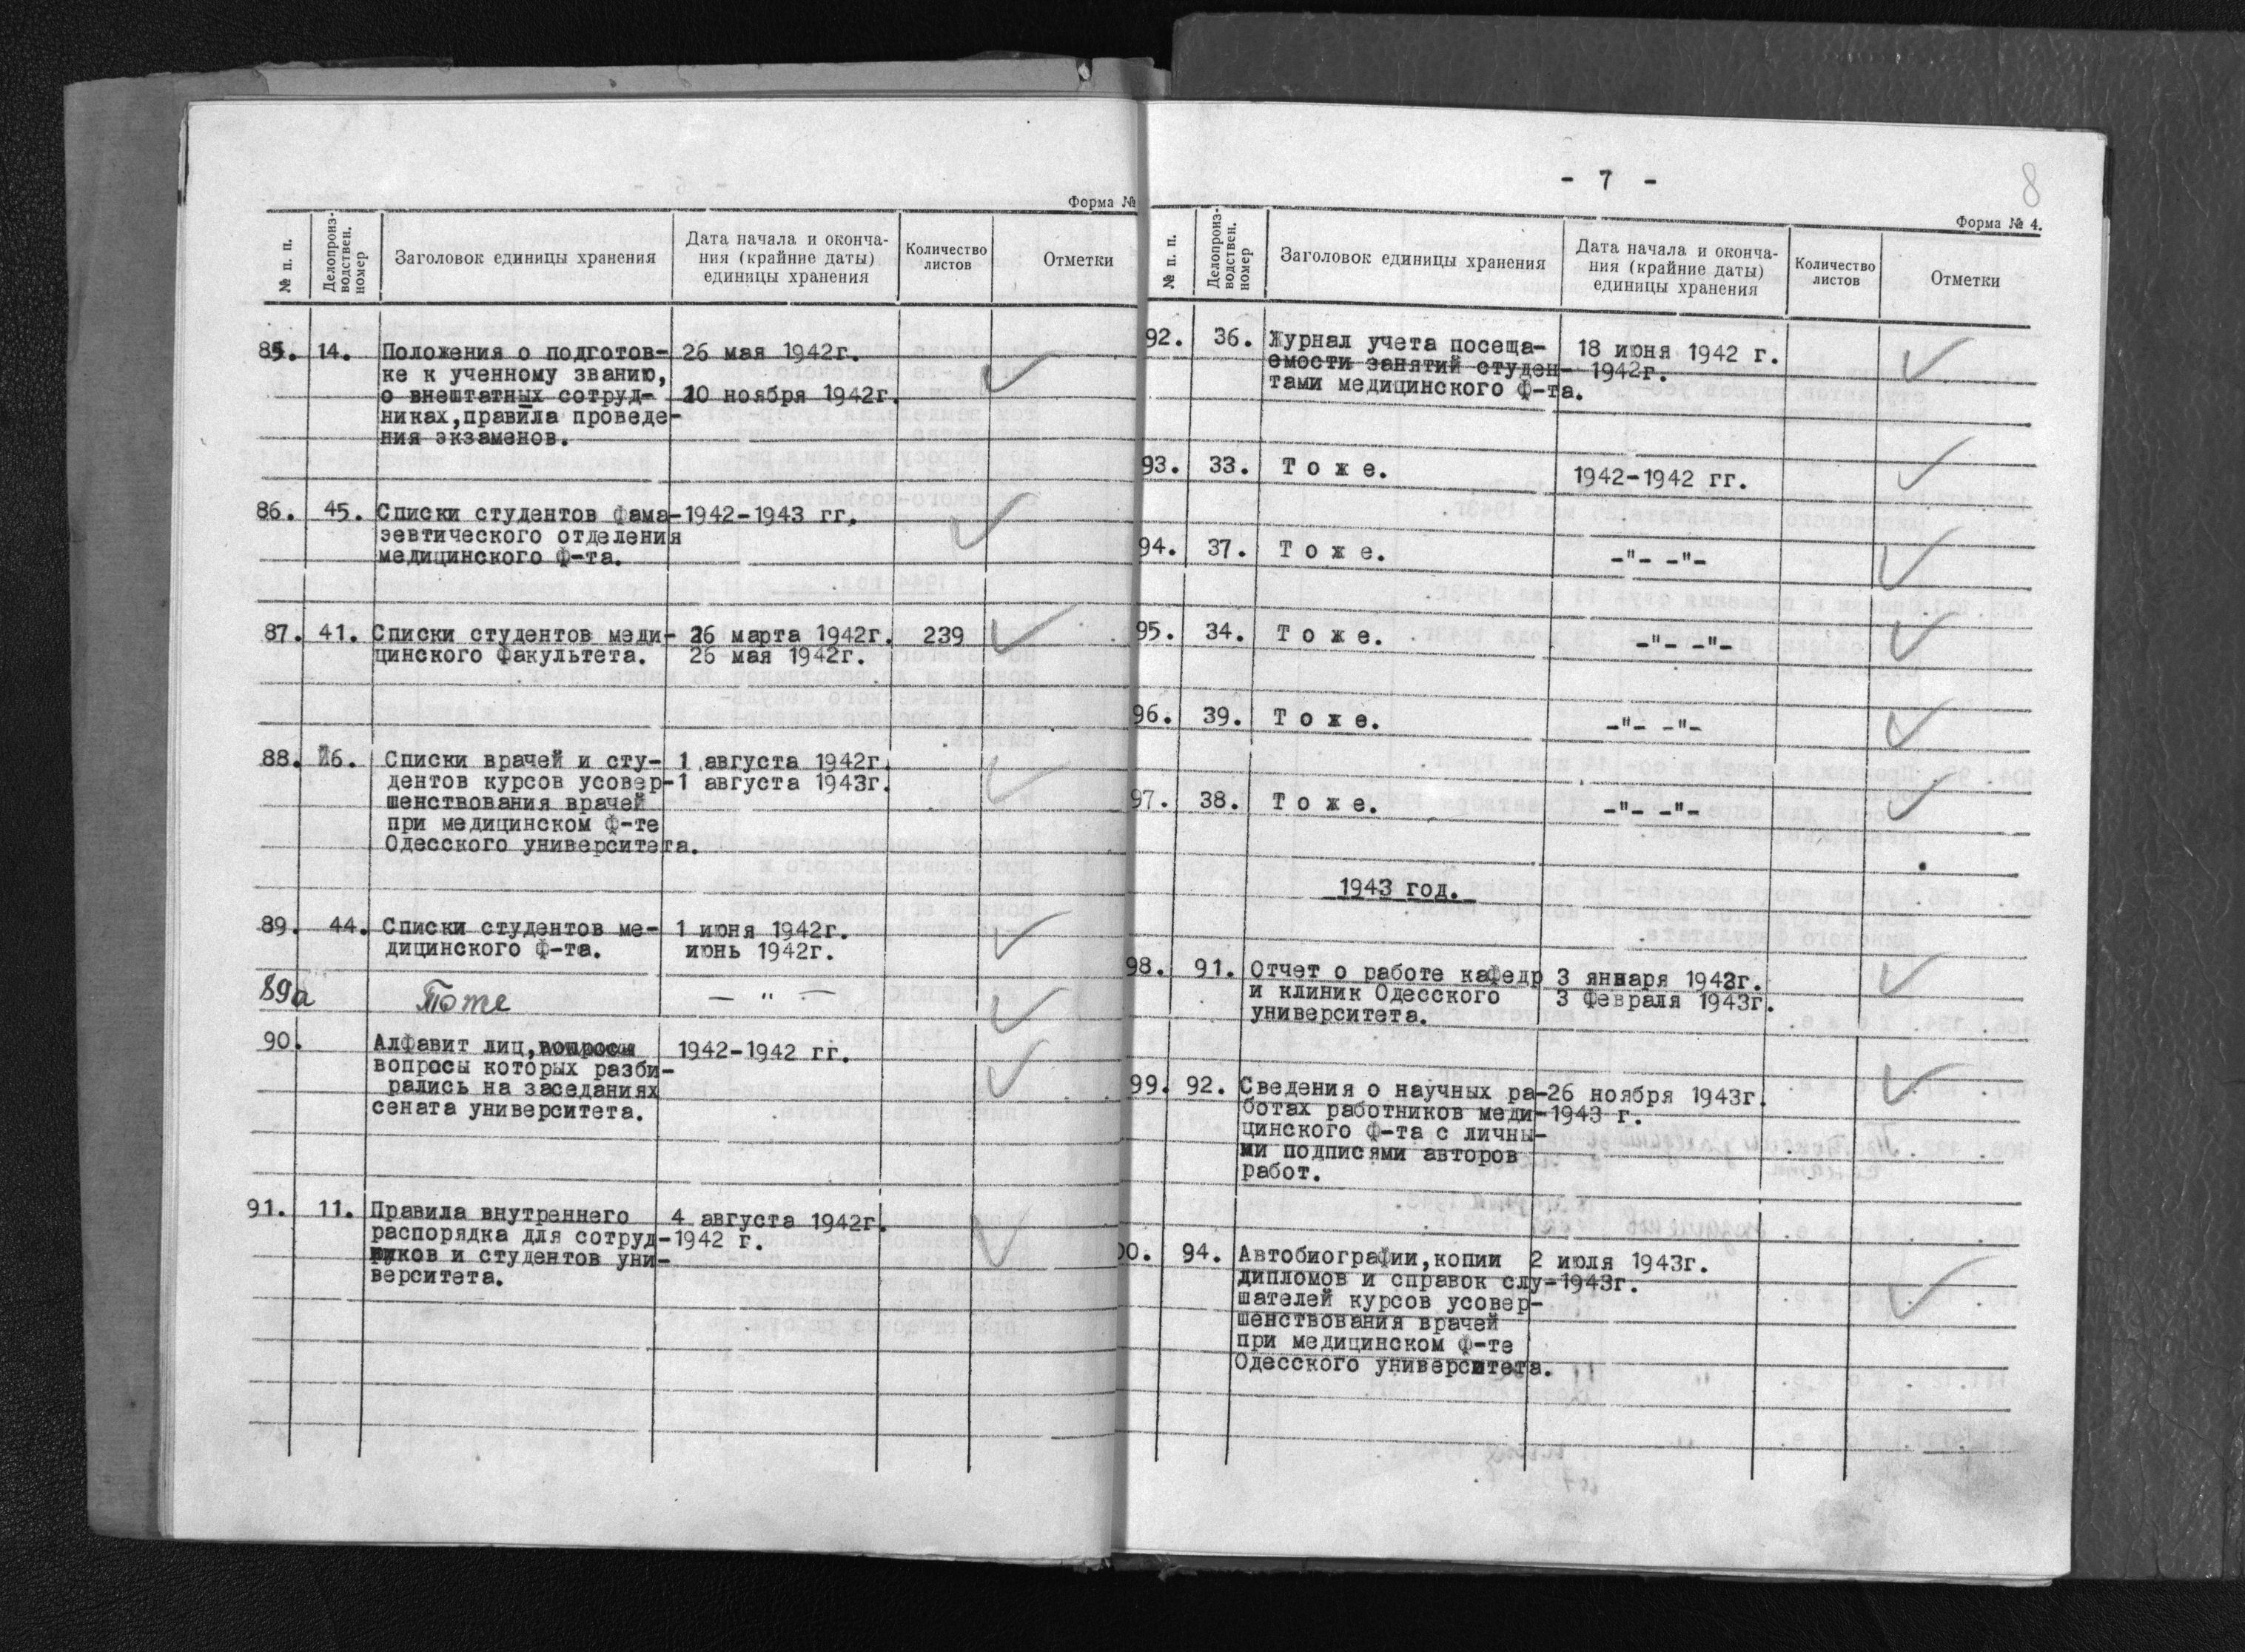 Форма №
№ п. п.
Делопроиз-
водствен.
номер
Заголовок единицы хранения
Дата начала и оконча-
ния (крайние даты)
единицы хранения
Количество
листов
Отметки
85. 14. Положения о подготов- 26 мая 1942г.
ке к ученному званию,
о внештатных сотруд- 10 ноября 1942г.
никах,правила проведе-
ния экзаменов.
86. 45. Списки студентов фама- 1942-1943 гг.
зевтического отделения
медицинского ф-та.
87. 41. Списки студентов меди- 26 марта 1942г. 239
цинского факультета. 26 мая 1942г.
88. 26. Списки врачей и сту- 1 августа 1942г.
дентов курсов усовер- 1 августа 1943г.
шенствования врачей
при медицинском ф-те
Одесского университета.
89. 44. Списки студентов ме- 1 июня 1942г.
дицинского ф-та. июнь 1942г.
89а Тоже — " —
90. Алфавит лиц,вопросы 1942-1942 гг.
вопросы которых разби-
рались на заседаниях
сената университета.
91. 11. Правила внутреннего 4 августа 1942г.
распорядка для сотруд- 1942 г.
ников и студентов уни-
верситета.
- 7 -
8
Форма № 4.
№ п. п.
Делопроиз-
водствен.
номер
Заголовок единицы хранения
Дата начала и оконча-
ния (крайние даты)
единицы хранения
Количество
листов
Отметки
92. 36. Журнал учета посеща- 18 июня 1942 г.
емости занятий студен- 1942г.
тами медицинского ф-та.
93. 33. Т о ж е. 1942-1942 гг.
94. 37. Т о ж е. -"- -"-
95. 34. Т о ж е. -"- -"-
96. 39. Т о ж е. -"- -"-
97. 38. Т о ж е. -"- -"-
1943 год.
98. 91. Отчет о работе кафедр 3 января 1943г.
и клиник Одесского 3 февраля 1943г.
университета.
99. 92. Сведения о научных ра- 26 ноября 1943г.
ботах работников меди- 1943 г.
цинского ф-та с личны-
ми подписями авторов
работ.
00. 94. Автобиографии,копии 2 июля 1943г.
дипломов и справок слу- 1943г.
шателей курсов усовер-
шенствования врачей
при медицинском ф-те
Одесского университета.